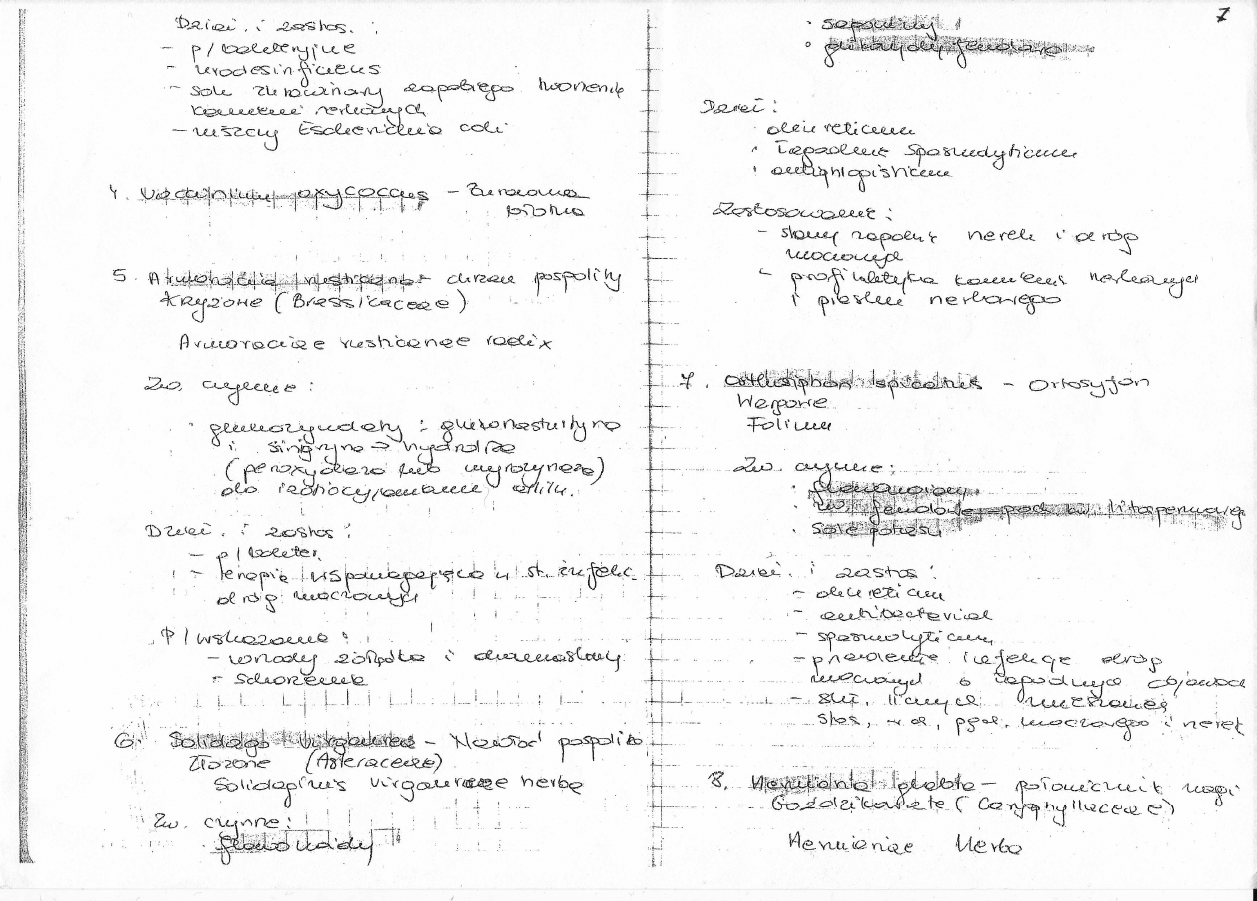 Dział. i zastos. :
- p/bakteryjne
- urodesinficiens
- sok żurawinowy zapobiega tworzeniu
kamieni nerkowych
- niszczy Escherichia coli
4. Vaccinium oxycoccus - Żurawina
błotna
5. Armoracia rusticana - chrzan pospolity
Krzyżowe (Brassicaceae)
Armoraciae rusticanae radix
Zw. czynne :
· glukozynolaty : glukonasturtyna
i sinigryna → hydroliza
(peroxydaza lub myrozynaza)
do izotiocyjanianu allilu.
Dział. i zastos :
- p/bakter.
- terapia wspomagająca w st. infekc.
dróg moczowych
P/wskazania :
- wrzody żołądka i dwunastnicy
- schorzenia
6. Solidago virgaurea - Nawłoć pospolita
Złożone (Asteraceae)
Solidaginis virgaureae herba
Zw. czynne :
flawonoidy
7
· saponiny
· glikozydy fenolowe
Dział :
· diureticum
· łagodnie spasmolyticum
· antiphlogisticum
Zastosowanie :
- stany zapalne nerek i dróg
moczowych
- profilaktyka kamieni nerkowych
i piasku nerkowego
7. Orthosiphon spicatus - Ortosyfon
Wargowe
Folium
Zw. czynne :
· flawonoidy
· zw. fenolowe - poch. kw. litospermowego
· Sole potasu
Dział. i zastos :
- diureticum
- antibacterial
- spasmolyticum
- przewlekłe infekcje dróg
moczowych o łagodnych objawach
- skł. licznych mieszanek
stos. w ch. pęch. moczowego i nerek
8. Herniaria glabra - połonicznik nagi
Goździkowate (Caryophyllaceae)
Herniariae Herba